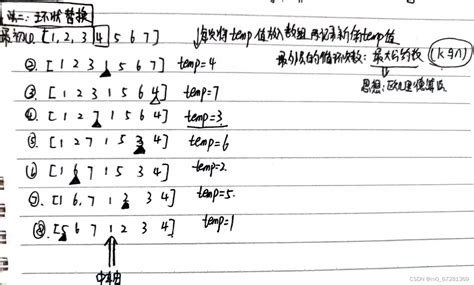 法二: 环状替换
最初①. [1, 2, 3, 4 5 6 7] 每次将temp值放入数组,再记录新的temp值
②. [1 2 3 1 5 6 7] temp=4 最外层的循环次数: 最大公约数 (k与n)
③. [1 2 3 1 5 6 4] temp=7 思想:欧几里德算法
④. [1 2 7 1 5 6 4] temp=3
⑤. [1 2 7 1 5 3 4] temp=6
⑥. [1 6 7 1 5 3 4] temp=2
⑦. [1 6, 7 1 2 3 4] temp=5
⑧. [5 6 7 1 2 3 4] temp=1
CSDN @m0_67281369